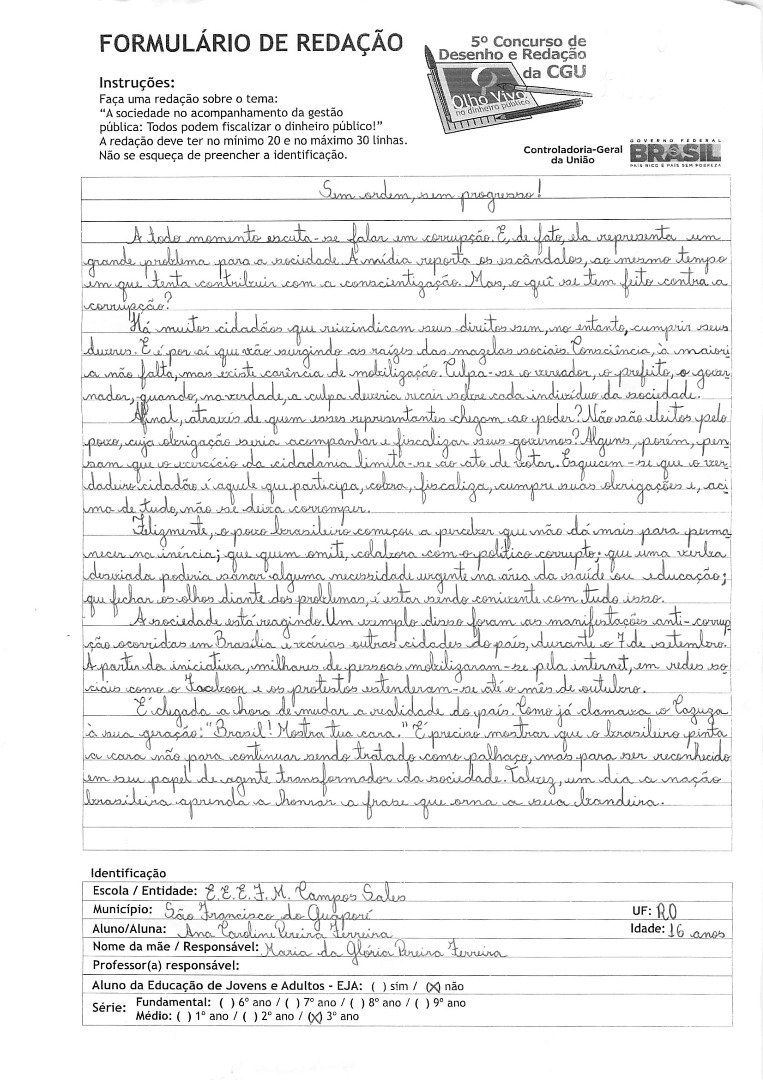 FORMULÁRIO DE REDAÇÃO
5º Concurso de
Desenho e Redação
da CGU
Olho Vivo
no dinheiro público
Instruções:
Faça uma redação sobre o tema:
“A sociedade no acompanhamento da gestão
pública: Todos podem fiscalizar o dinheiro público!”
A redação deve ter no mínimo 20 e no máximo 30 linhas.
Não se esqueça de preencher a identificação.
Controladoria-Geral
da União
GOVERNO FEDERAL
BRASIL
PAÍS RICO É PAÍS SEM POBREZA
Sem ordem, sem progresso!
A todo momento escuta-se falar em corrupção. E, de fato, ela representa um
grande problema para a sociedade. A mídia reporta os escândalos, ao mesmo tempo
em que tenta contribuir com a conscientização. Mas, o quê se tem feito contra a
corrupção?
Há muitos cidadãos que reivindicam seus direitos sem, no entanto, cumprir seus
deveres. E é por aí que vão surgindo as raízes das mazelas sociais. Consciência, à maiori
a não falta, mas existe carência de mobilização. Culpa-se o vereador, o prefeito, o gover
nador, quando, na verdade, a culpa deveria recair sobre cada indivíduo da sociedade.
Afinal, através de quem esses representantes chegam ao poder? Não são eleitos pelo
povo, cuja obrigação seria acompanhar e fiscalizar seus governos? Alguns, porém, pen
sam que o exercício da cidadania limita-se ao ato de votar. Esquecem-se que o ver
dadeiro cidadão é aquele que participa, cobra, fiscaliza, cumpre suas obrigações e, aci
ma de tudo, não se deixa corromper.
Felizmente, o povo brasileiro começou a perceber que não dá mais para perma
necer na inércia; que quem omite, colabora com o político corrupto; que uma verba
desviada poderia sanar alguma necessidade urgente na área da saúde ou educação;
que fechar os olhos diante dos problemas, é estar sendo conivente com tudo isso.
A sociedade está reagindo. Um exemplo disso foram as manifestações anti-corrup
ção ocorridas em Brasília e várias outras cidades do país, durante o 7 de setembro.
A partir da iniciativa, milhares de pessoas mobilizaram-se pela internet, em redes so
ciais como o Facebook e os protestos estenderam-se até o mês de outubro.
É chegada a hora de mudar a realidade do país. Como já clamava o Cazuza
à sua geração: "Brasil! Mostra tua cara." É preciso mostrar que o brasileiro pinta
a cara não para continuar sendo tratado como palhaço, mas para ser reconhecido
em seu papel de agente transformador da sociedade. Talvez, um dia a nação
brasileira aprenda a honrar a frase que orna a sua bandeira.
Identificação
Escola / Entidade: E.E.E.F.M. Campos Sales
Município: São Francisco do Guaporé UF: RO
Aluno/Aluna: Ana Caroline Pereira Ferreira Idade: 16 anos
Nome da mãe / Responsável: Maria da Glória Pereira Ferreira
Professor(a) responsável:
Aluno da Educação de Jovens e Adultos - EJA: ( ) sim / (X) não
Série: Fundamental: ( ) 6º ano / ( ) 7º ano / ( ) 8º ano / ( ) 9º ano
Médio: ( ) 1º ano / ( ) 2º ano / (X) 3º ano